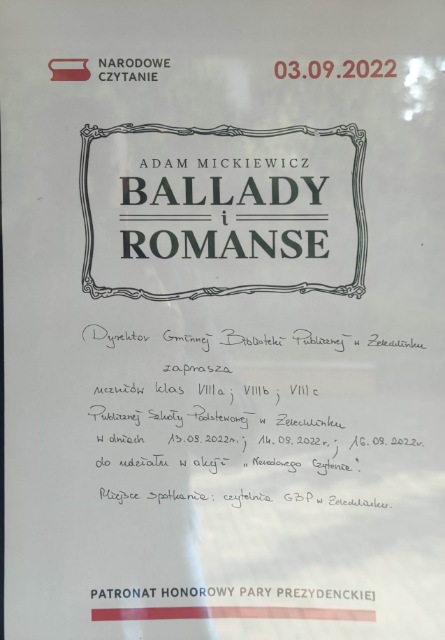 NARODOWE
CZYTANIE
03.09.2022
ADAM MICKIEWICZ
BALLADY
i
ROMANSE
Dyrektor Gminnej Biblioteki Publicznej w Żelechlinku
zaprasza
uczniów klas VIIIa ; VIIIb ; VIIIc
Publicznej Szkoły Podstawowej w Żelechlinku
w dniach 13.09.2022r. ; 14.09.2022r. ; 16.09.2022r.
do udziału w akcji „Narodowego Czytania".
Miejsce spotkania: czytelnia GBP w Żelechlinku.
PATRONAT HONOROWY PARY PREZYDENCKIEJ